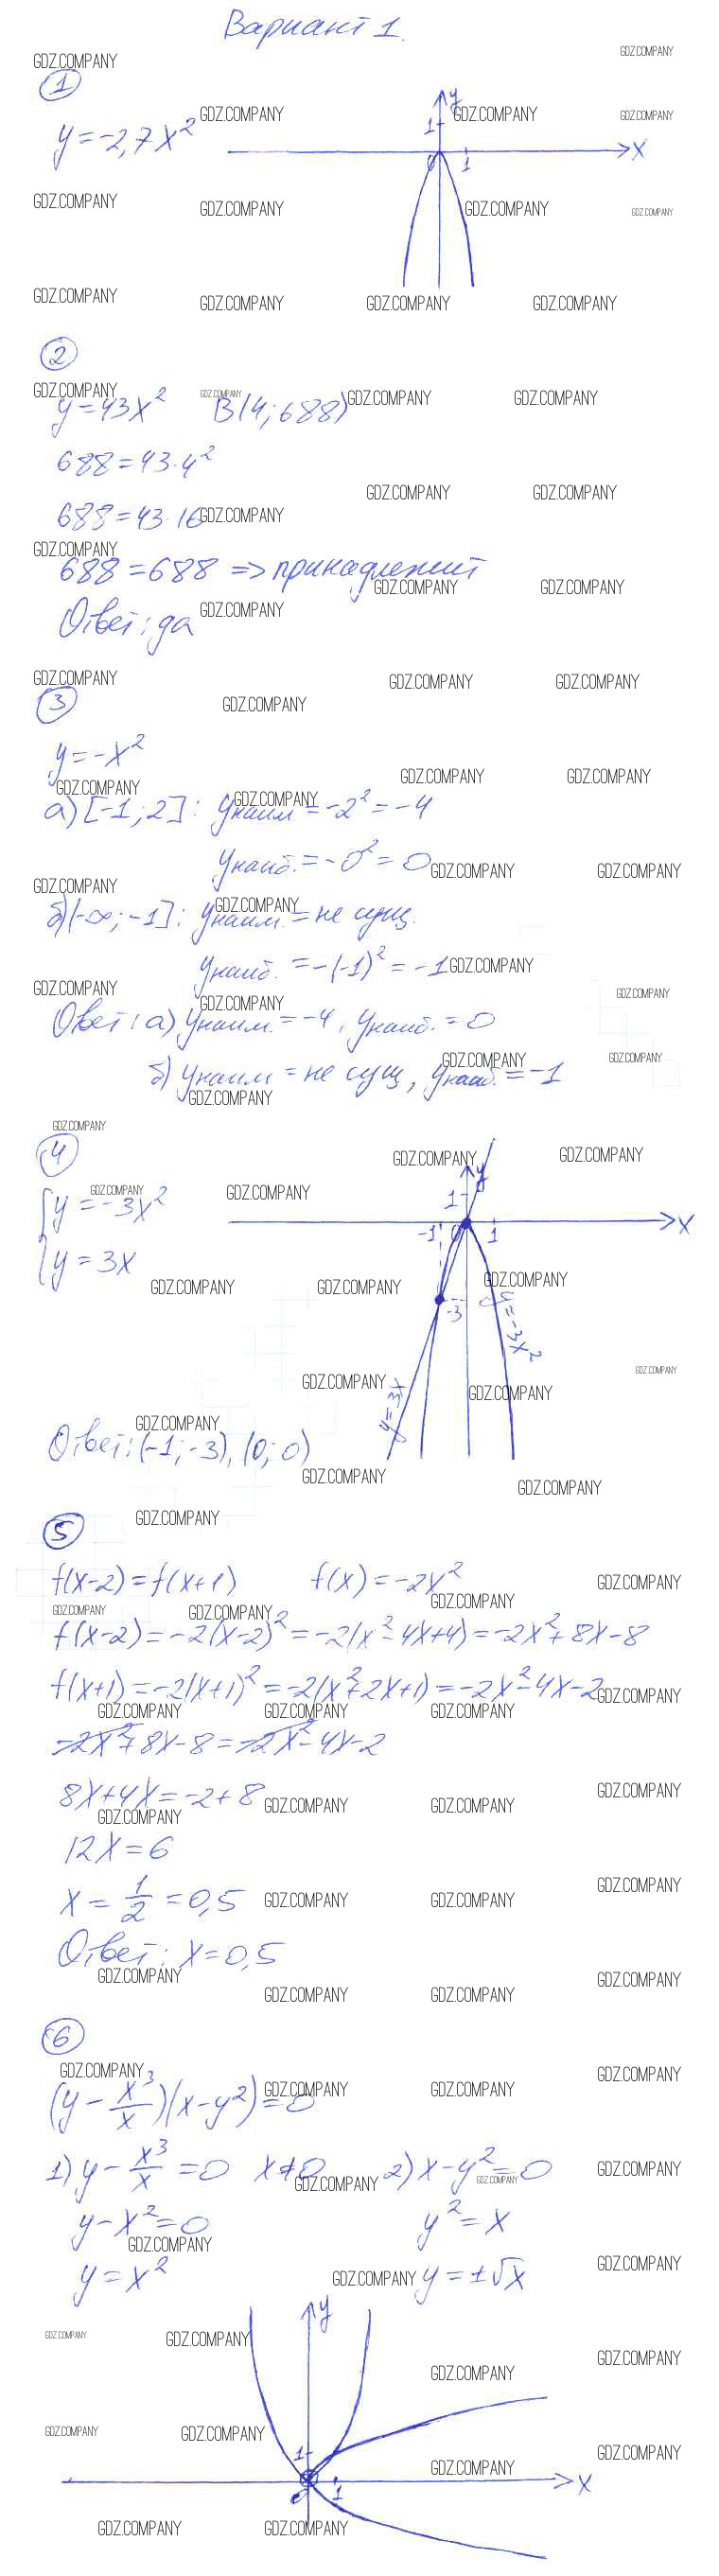 Вариант 1.
1
y = -2,7x²
y
1
0 1 x
2
y = 43x² B(4; 688)
688 = 43·4²
688 = 43·16
688 = 688 => принадлежит
Ответ: да
3
y = -x²
а) [-1; 2]: yнаим = -2² = -4
yнаиб. = -0² = 0
б) (-∞; -1]: yнаим. = не сущ.
yнаиб. = -(-1)² = -1
Ответ: а) yнаим. = -4, yнаиб. = 0
б) yнаим = не сущ, yнаиб. = -1
4
{y = -3x²
{y = 3x
y
1
-1 0 1 x
-3
y = -3x²
y = 3x
Ответ: (-1; -3), (0; 0)
5
f(x-2) = f(x+1) f(x) = -2x²
f(x-2) = -2(x-2)² = -2(x²-4x+4) = -2x²+8x-8
f(x+1) = -2(x+1)² = -2(x²+2x+1) = -2x²-4x-2
-2x²+8x-8 = -2x²-4x-2
8x+4x = -2+8
12x = 6
x = 1/2 = 0,5
Ответ: x = 0,5
6
(y - x³/x)(x-y²) = 0
1) y - x³/x = 0 x≠0 2) x-y² = 0
y-x² = 0 y² = x
y = x² y = ±√x
y
1
0 1 x
GDZ.COMPANY